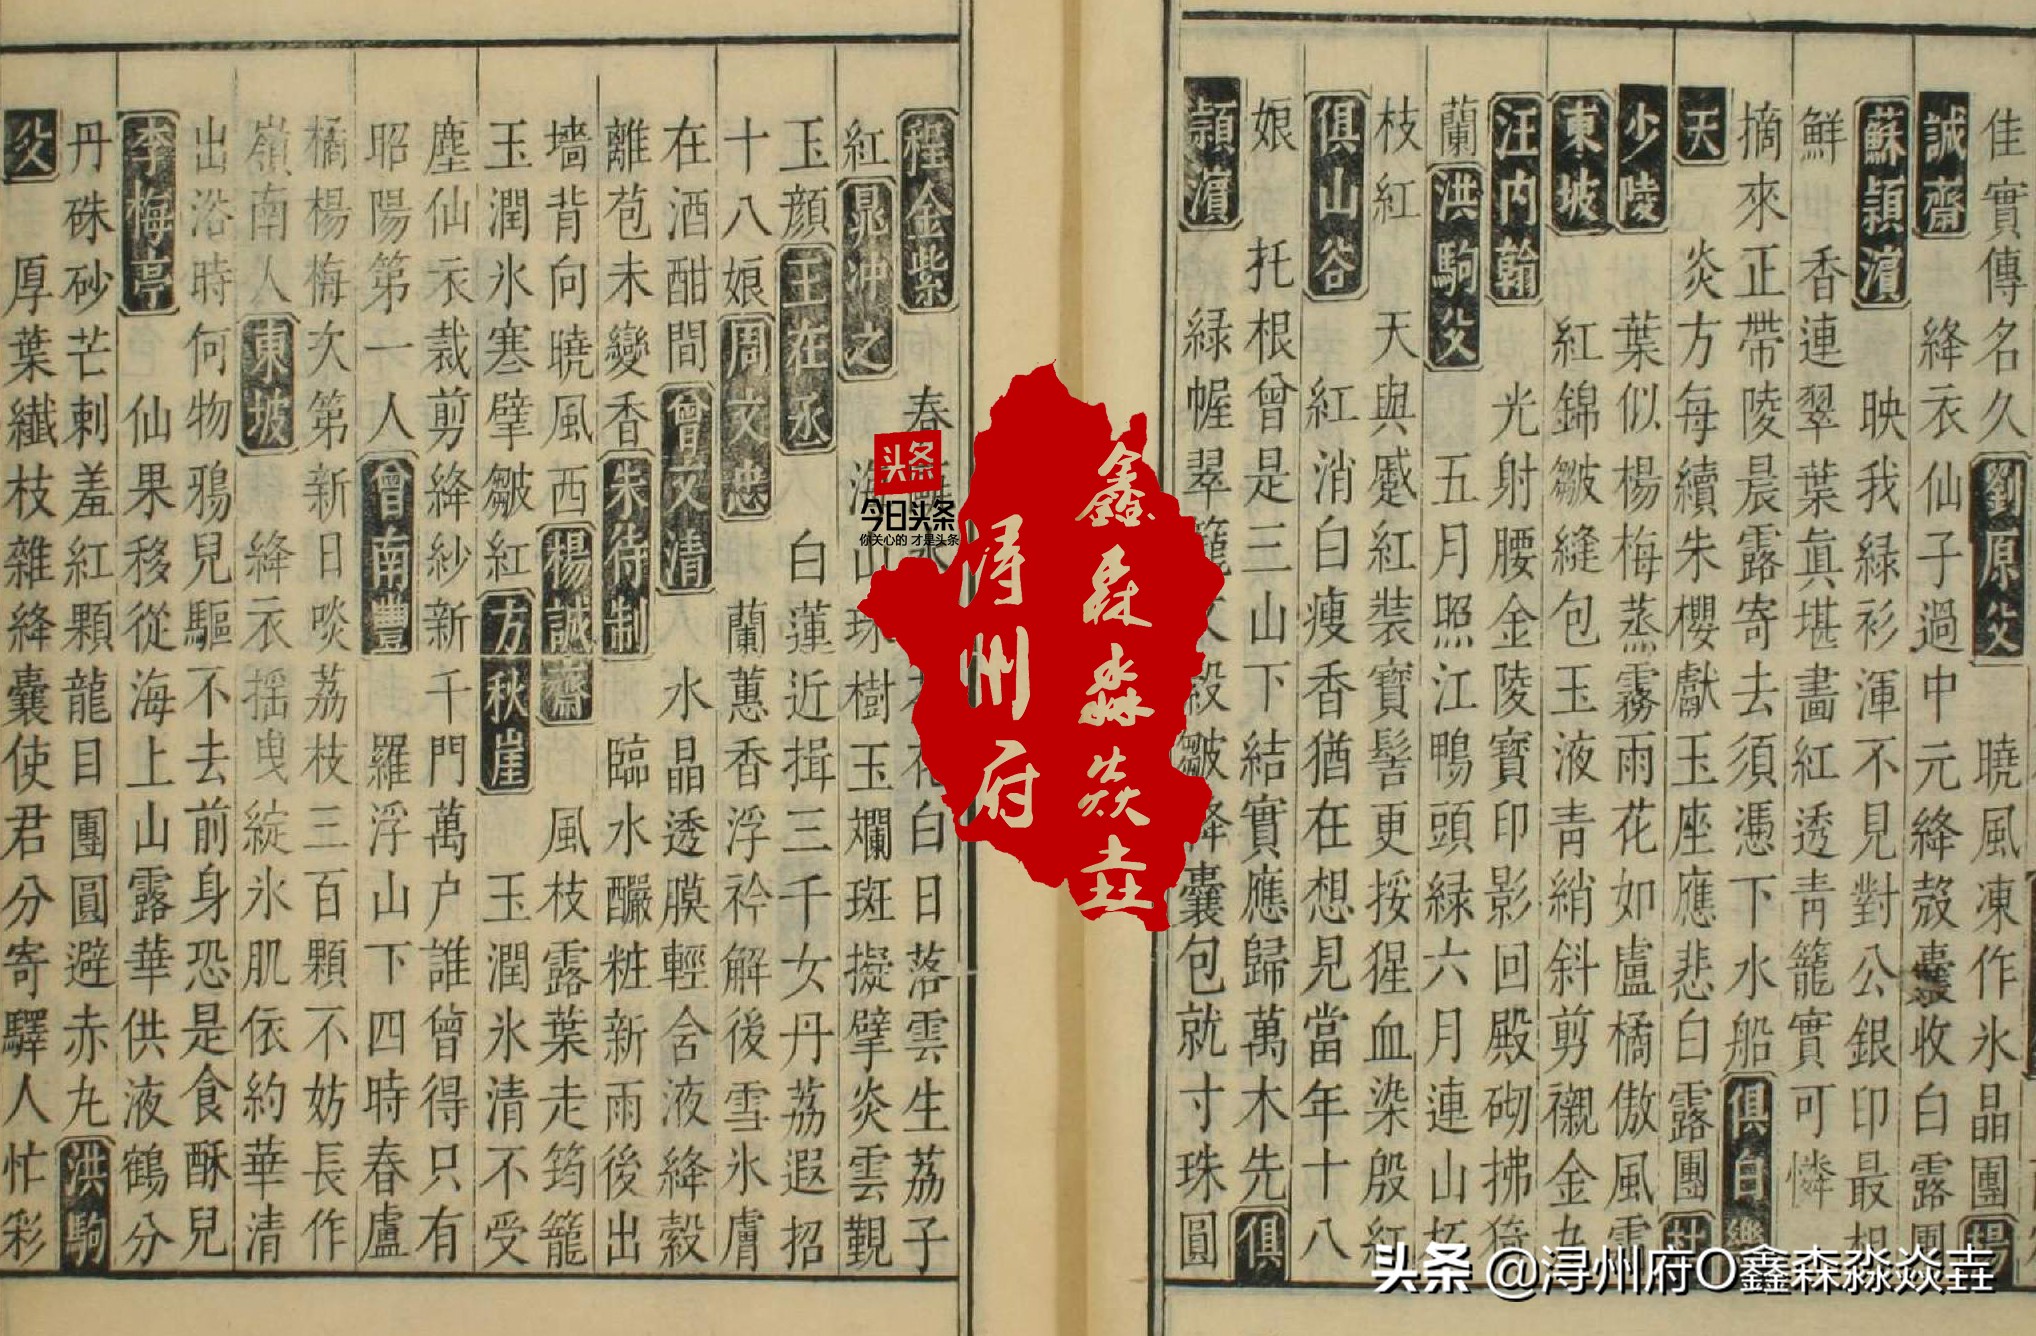 佳實傳名久劉原父 曉風凍作氷晶團楊
誠齋 絳衣仙子過中元絳殼囊收白露團
蘇潁濵 映我緑衫渾不見對公銀印最相
鮮 香連翠葉眞堪畫紅透青籠實可憐
摘來正帶陵晨露寄去須憑下水船俱白樂
天 炎方每續朱櫻獻玉座應悲白露團杜
少陵 葉似楊梅蒸霧雨花如盧橘傲風雪
東坡 紅錦皺縫包玉液青綃斜剪襯金丸
汪内翰 光射腰金陵寶印影回殿砌拂
蘭洪駒父 五月照江鴨頭緑六月連山柘
枝紅 天與戚紅裝寶髻更挼猩血染殷紅
俱山谷 紅消白瘦香猶在想見當年十八
娘 托根曾是三山下結實應歸萬木先俱
潁濵 緑幄翠籠 縠皺絳囊包就寸珠圓
程金紫 春 白日落雲生荔子
紅晁冲之 海山珠樹玉斕斑擬擘炎雲覲
玉顔王在丞 白蓮近揖三千女丹荔遐招
十八娘周文忠 蘭蕙香浮衿解後雪氷膚
在酒酣間曾文清 水晶透膜輕含液絳縠
離苞未變香朱待制 臨水釅粧新雨後出
墻背向曉風西楊誠齋 風枝露葉走筠籠
玉潤氷寒擘皺紅方秋崖 玉潤氷清不受
塵仙衣裁剪絳紗新 千門萬户誰曾得只有
昭陽第一人曾南豐 羅浮山下四時春盧
橘楊梅次第新日啖荔枝三百顆不妨長作
嶺南人東坡 絳衣摇曳綻氷肌依約華清
出浴時何物鴉兒驅不去前身恐是食酥兒
李梅亭 仙果移從海上山露華供液鶴分
丹硃砂芒刺羞紅顆龍目團圓避赤丸洪駒
父 厚葉纖枝雜絳囊使君分寄驛人忙彩
头条
今日头条
你关心的 才是头条
鑫森淼焱垚
浔州府
头条 @浔州府O鑫森淼焱垚